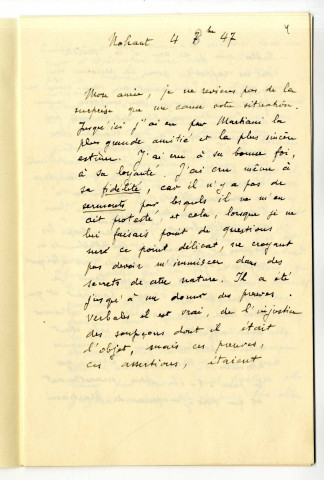 Nohant 4 bre 47
Mon amie, je ne reviens pas de la
surprise que me cause votre situation.
Jusqu'ici j'ai eu pour Marliani la
plus grande amitié et la plus sincère
estime. J'ai cru à sa bonne foi,
à sa loyauté. J'ai cru même à
sa fidélité, car il n'y a pas de
serments par lesquels il ne m'en
ait protesté, et cela, lorsque je ne
lui faisais point de questions
sur ce point délicat, ne croyant
pas devoir m'immiscer dans des
secrets de cette nature. Il a été
jusqu'à me donner des preuves
verbales il est vrai, de l'injustice
des soupçons dont il était
l'objet, mais ces preuves,
ces assertions, étaient